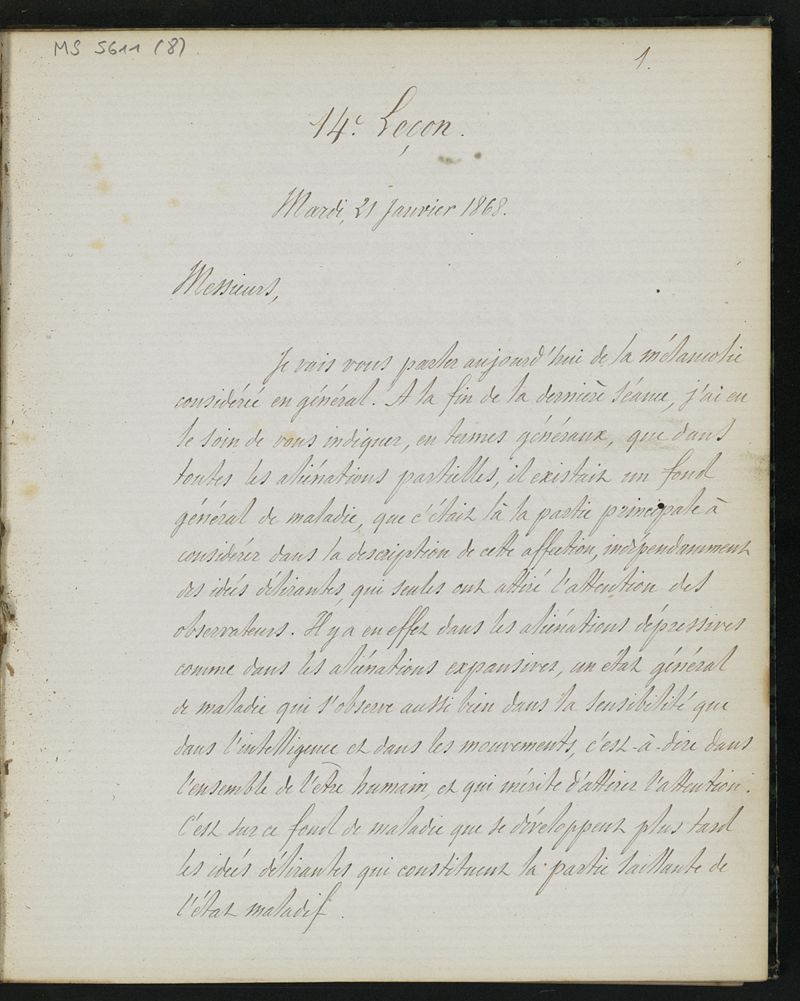 MS 5611 (8)
1.
14e. Leçon.
Mardi, 21 Janvier 1868.
Messieurs,
Je vais vous parler aujourd'hui de la mélancolie
considérée en général. A la fin de la dernière séance, j'ai eu
le soin de vous indiquer, en termes généraux, que dans
toutes les aliénations partielles, il existait un fond
général de maladie, que c'était là la partie principale à
considérer dans la description de cette affection, indépendamment
des idées délirantes, qui seules ont attiré l'attention des
observateurs. Il y a en effet dans les aliénations dépressives
comme dans les aliénations expansives, un état général
de maladie qui s'observe aussi bien dans la sensibilité que
dans l'intelligence et dans les mouvements, c'est-à-dire dans
l'ensemble de l'être humain, et qui mérite d'attirer l'attention.
C'est sur ce fond de maladie que se développent plus tard
les idées délirantes qui constituent la partie saillante de
l'état maladif.